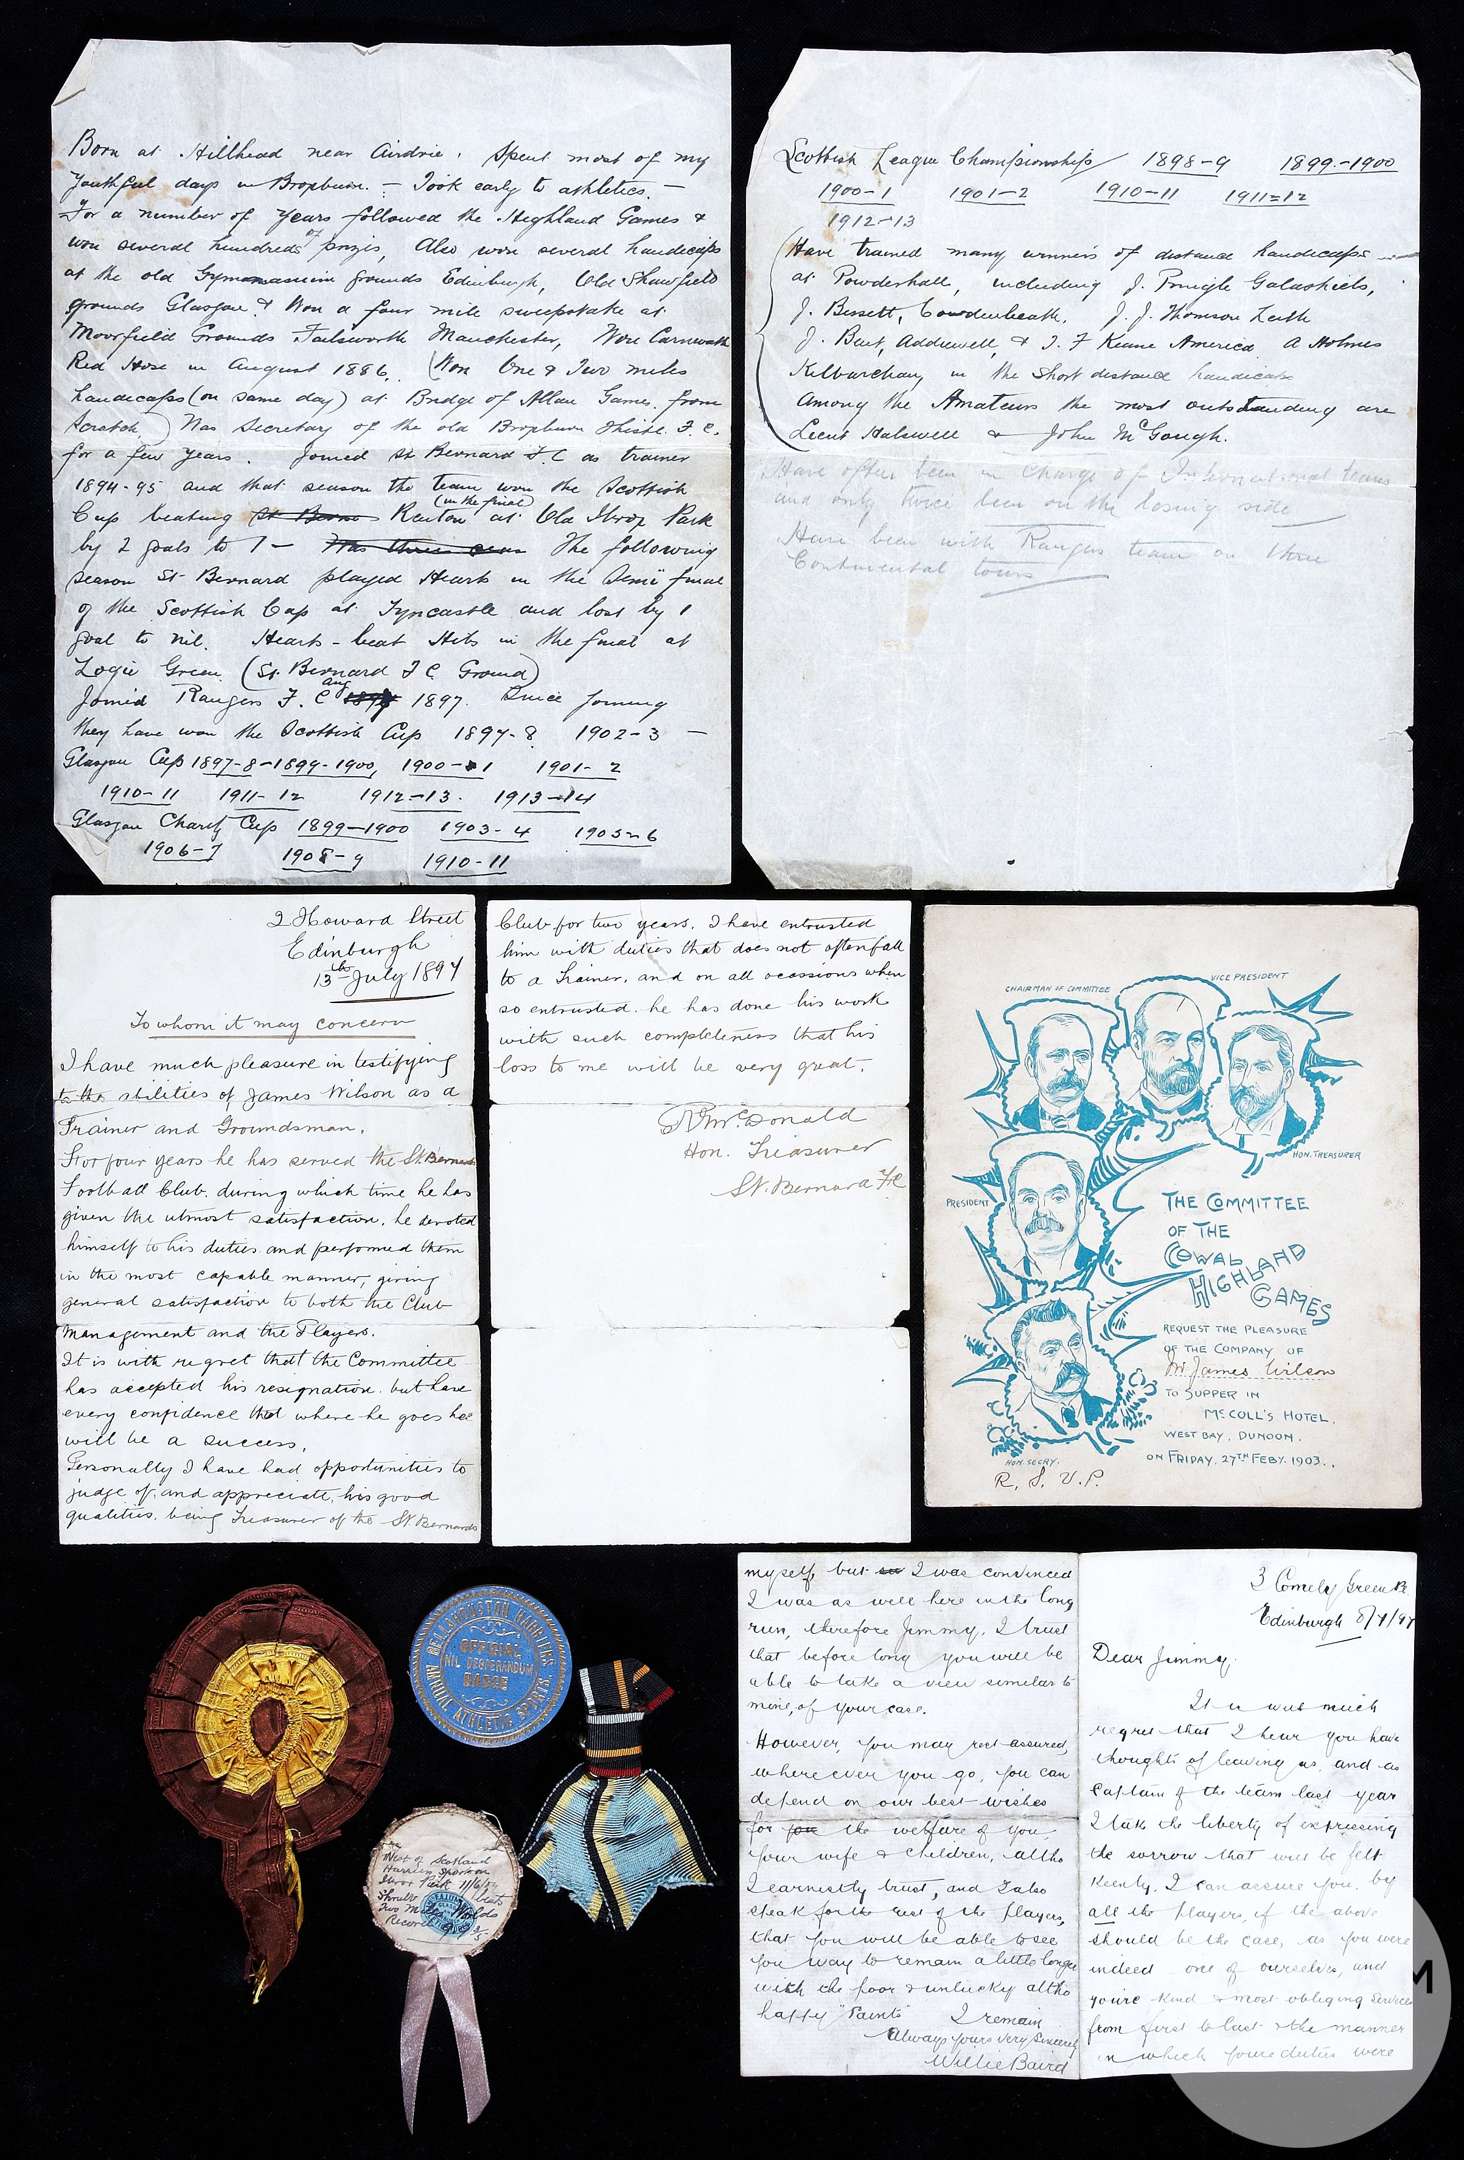 Born at Hillhead near Airdrie. Spent most of my
youthful days in Broxburn. — Took early to athletics. —
For a number of years followed the Highland Games &
won several hundreds of prizes, Also won several handicaps
at the old Gymnasium grounds Edinburgh, Old Shawfield
grounds Glasgow & Won a four mile sweepstake at
Moorfield Grounds Failsworth Manchester, Won Carnwath
Red Hose in August 1886, (Won One & Two miles
handicaps (on same day) at Bridge of Allan Games from
Scratch.) Was Secretary of the old Broxburn Thistle F.C.
for a few years. Joined St Bernard F.C as trainer
1894-95 and that season the team won the Scottish
Cup beating St Berna Renton (in the final) at Old Ibrox Park
by 2 goals to 1 — The following
season St Bernard played Hearts in the Semi final
of the Scottish Cup at Tyncastle and lost by 1
goal to nil. Hearts - beat Hibs in the final at
Logie Green (St. Bernard F C Ground)
Joined Rangers F. C Aug 1897. Since joining
they have won the Scottish Cup 1897-8 1902-3 —
Glasgow Cup 1897-8-1899-1900, 1900-1 1901-2
1910-11 1911-12 1912-13. 1913-14
Glasgow Charity Cup 1899-1900 1903-4 1905-6
1906-7 1908-9 1910-11
Scottish League Championship 1898-9 1899-1900
1900-1 1901-2 1910-11 1911-12
1912-13
(Have trained many winners of distance handicaps
at Powderhall, including J. Pringle Galashiels,
J. Bissett, Cowdenbeath, J. J. Thomson Leith
J. Bent, Addiewell, & T. F Keane America A Holmes
Kilbarchan in the short distance handicaps
Among the Amateurs the most outstanding are
Lieut Halswell & John McGough.
Have often been in charge of International teams
and only twice been on the losing side
Have been with Rangers team on three
Continental tours
2 Howard Street
Edinburgh
13th July 1897
To whom it may concern
I have much pleasure in testifying
to the abilities of James Wilson as a
Trainer and Groundsman.
For four years he has served the St. Bernard
Football Club, during which time he has
given the utmost satisfaction, he devoted
himself to his duties and performed them
in the most capable manner, giving
general satisfaction to both the Club
Management and the Players.
It is with regret that the Committee
has accepted his resignation but have
every confidence that where he goes he
will be a success.
Personally I have had opportunities to
judge of, and appreciate, his good
qualities, being Treasurer of the St Bernards
Club for two years. I have entrusted
him with duties that does not often fall
to a Trainer, and on all ocassions when
so entrusted he has done his work
with such completeness that his
loss to me will be very great.
McDonald
Hon. Treasurer
St. Bernard FC
CHAIRMAN OF COMMITTEE
VICE PRESIDENT
HON. TREASURER
PRESIDENT
THE COMMITTEE
OF THE
COWAL
HIGHLAND
GAMES
REQUEST THE PLEASURE
OF THE COMPANY OF
Mr James Wilson
TO SUPPER IN
McCOLL'S HOTEL,
WEST BAY, DUNOON.
ON FRIDAY, 27TH FEBY. 1903.
HON. SECRY.
R. S. V. P.
BELLAHOUSTON HARRIERS.
ANNUAL ATHLETIC SPORTS.
OFFICIAL
NIL DESPERANDUM
BADGE
West of Scotland
Harriers Sports
Ibrox Park 11/6/04
Shrubb beats
Two Miles Worlds
Record 9.9 3/5
3 Comely Green Pl
Edinburgh 8/7/97
Dear Jimmy.
It is with much
regret that I hear you have
thoughts of leaving us, and as
Captain of the team last year
I take the liberty of expressing
the sorrow that will be felt
keenly, I can assure you, by
all the players, if the above
should be the case, as you were
indeed one of ourselves, and
youre kind & most obliging services
from first to last & the manner
in which youre duties were
myself, but I was convinced
I was as well here in the long
run, therefore Jimmy, I trust
that before long you will be
able to take a view similar to
mine, of your case.
However, you may rest assured,
wherever you go, you can
depend on our best wishes
for the welfare of you,
your wife & children, altho
I earnestly trust, and I also
speak for the rest of the players,
that you will be able to see
you way to remain a little longer
with the poor & unlucky altho
happy "Saints" I remain
Always yours very sincerely
Willie Baird
M